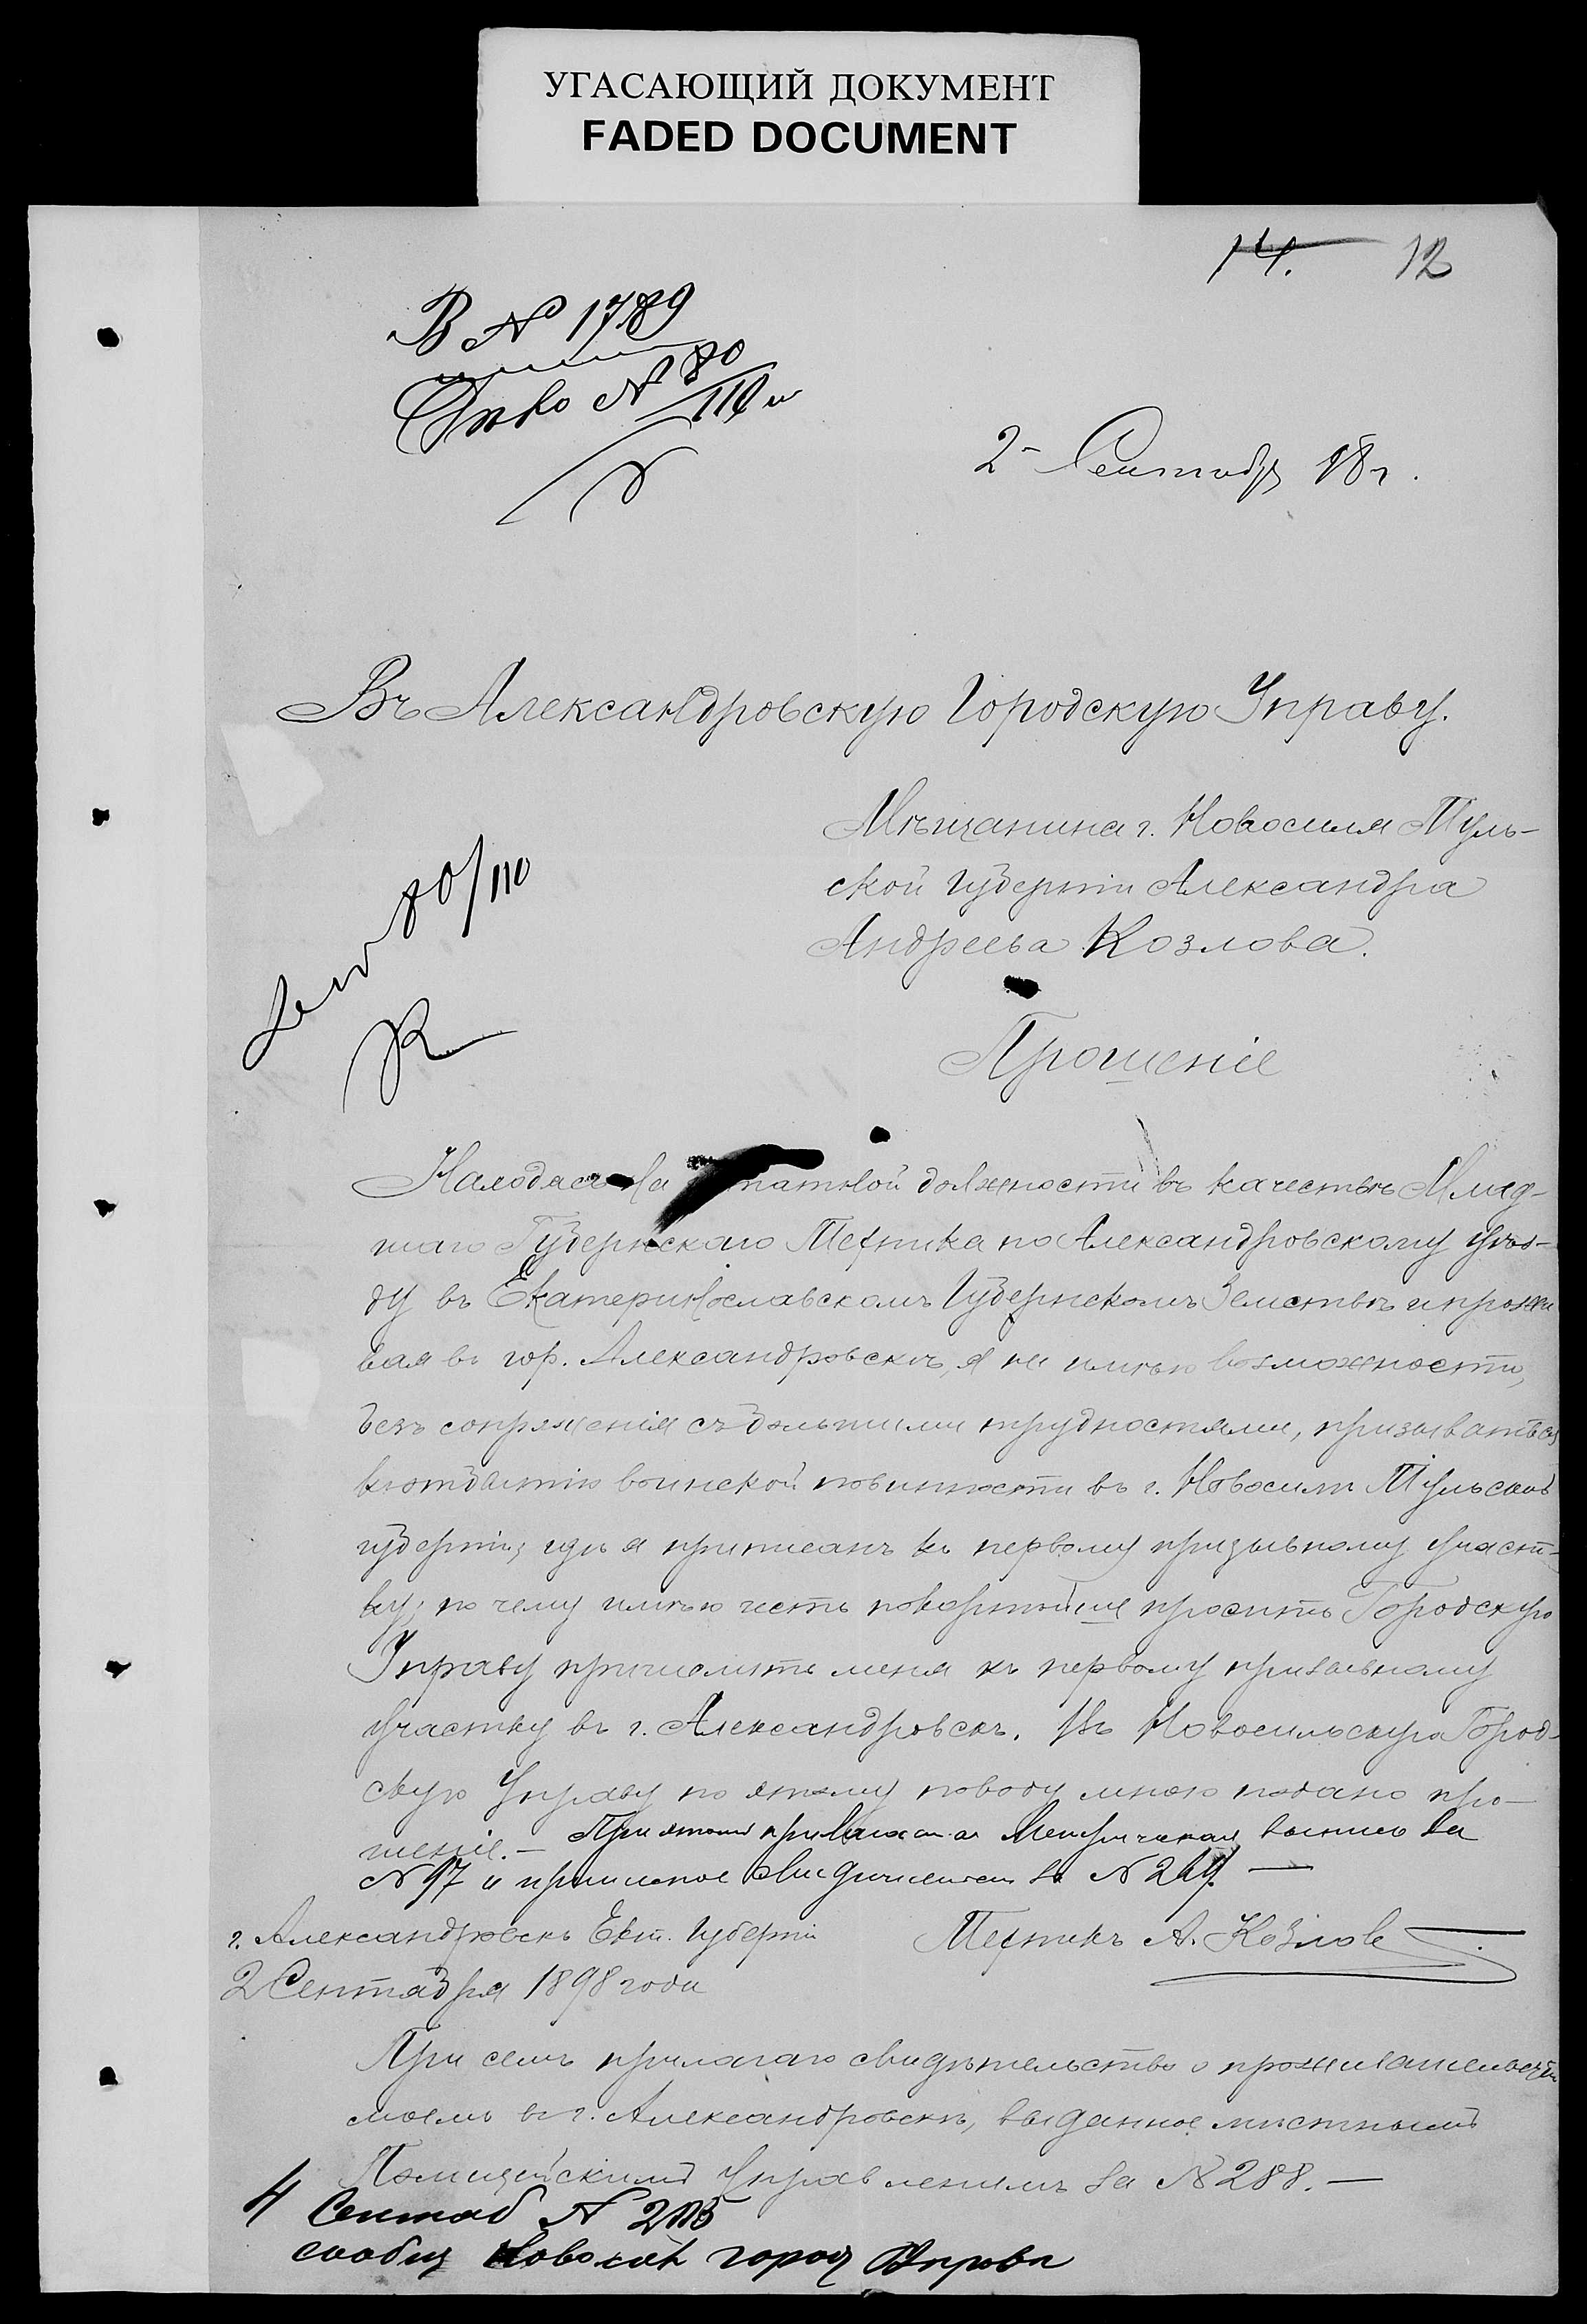 УГАСАЮЩИЙ ДОКУМЕНТ
FADED DOCUMENT
14. 12
В № 1789
№ 80/110
2 Сентябр 98 г.
Въ Александровскую Городскую Управу.
Мѣщанина г. Новосиля Туль-
ской Губерніи Александра
Андреева Козлова.
80/110
Прошеніе
Находясь на штатной должности въ качествѣ Млад-
шаго Губернскаго Техника по Александровскому уѣз-
ду въ Екатеринославскомъ Губернскомъ Земствѣ и прожи
вая въ гор. Александровскѣ, я не имѣю возможности,
безъ сопряженія съ большими трудностями, призываться
къ отбытію воинской повинности въ г. Новосилѣ Тульской
губерніи, гдѣ я приписанъ къ первому призывному участ-
ку; по чему имѣю честь покорнѣйше просить Городскую
Управу причислить меня къ первому призывному
участку въ г. Александровскѣ. Въ Новосильскую Город-
скую Управу по этому поводу мною подано про-
шеніе. — При этомъ прилагаю Метрическая выпись за
№ 97 и приписное свидѣтельст за № 264. —
г. Александровскъ Екат. Губерніи Техникъ А. Козловъ
2 Сентября 1898 года
При семъ прилагаю свидѣтельство о
моемъ въ г. Александровскѣ, выданное мѣстнымъ
Полицейскимъ Управленіемъ за № 288. —
4 Сентяб №
сообщ Новосил город Управѣ